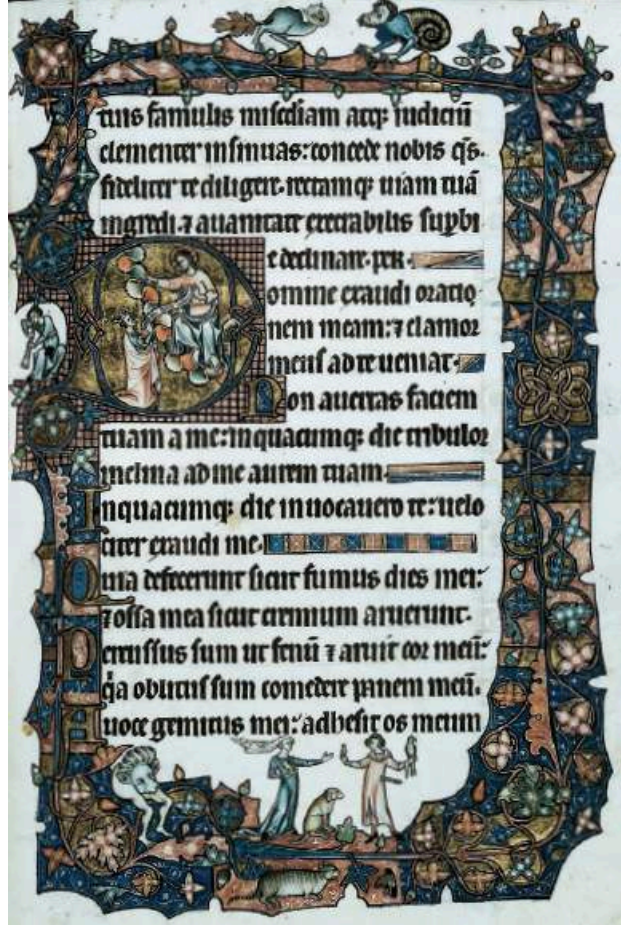 tuis famulis mis̄cdiam atq; iudiciū
clementer insinuas: concede nobis q̄s.
fideliter te diligere. rectamq; uiam tuā
ingredi. ⁊ a uanitate execrabilis sup̄bi
e declinare. per.
Domine exaudi oratio
nem meam: ⁊ clamor
meus ad te ueniat.
Non auertas faciem
tuam a me: in quacumq; die tribulor
inclina ad me aurem tuam.
In quacumq; die inuocauero te: uelo
citer exaudi me.
Quia defecerunt sicut fumus dies mei:
⁊ ossa mea sicut cremium aruerunt.
Percussus sum ut fenū ⁊ aruit cor meū:
q̇a oblitus sum comedere panem meū.
A uoce gemitus mei: adhesit os meum